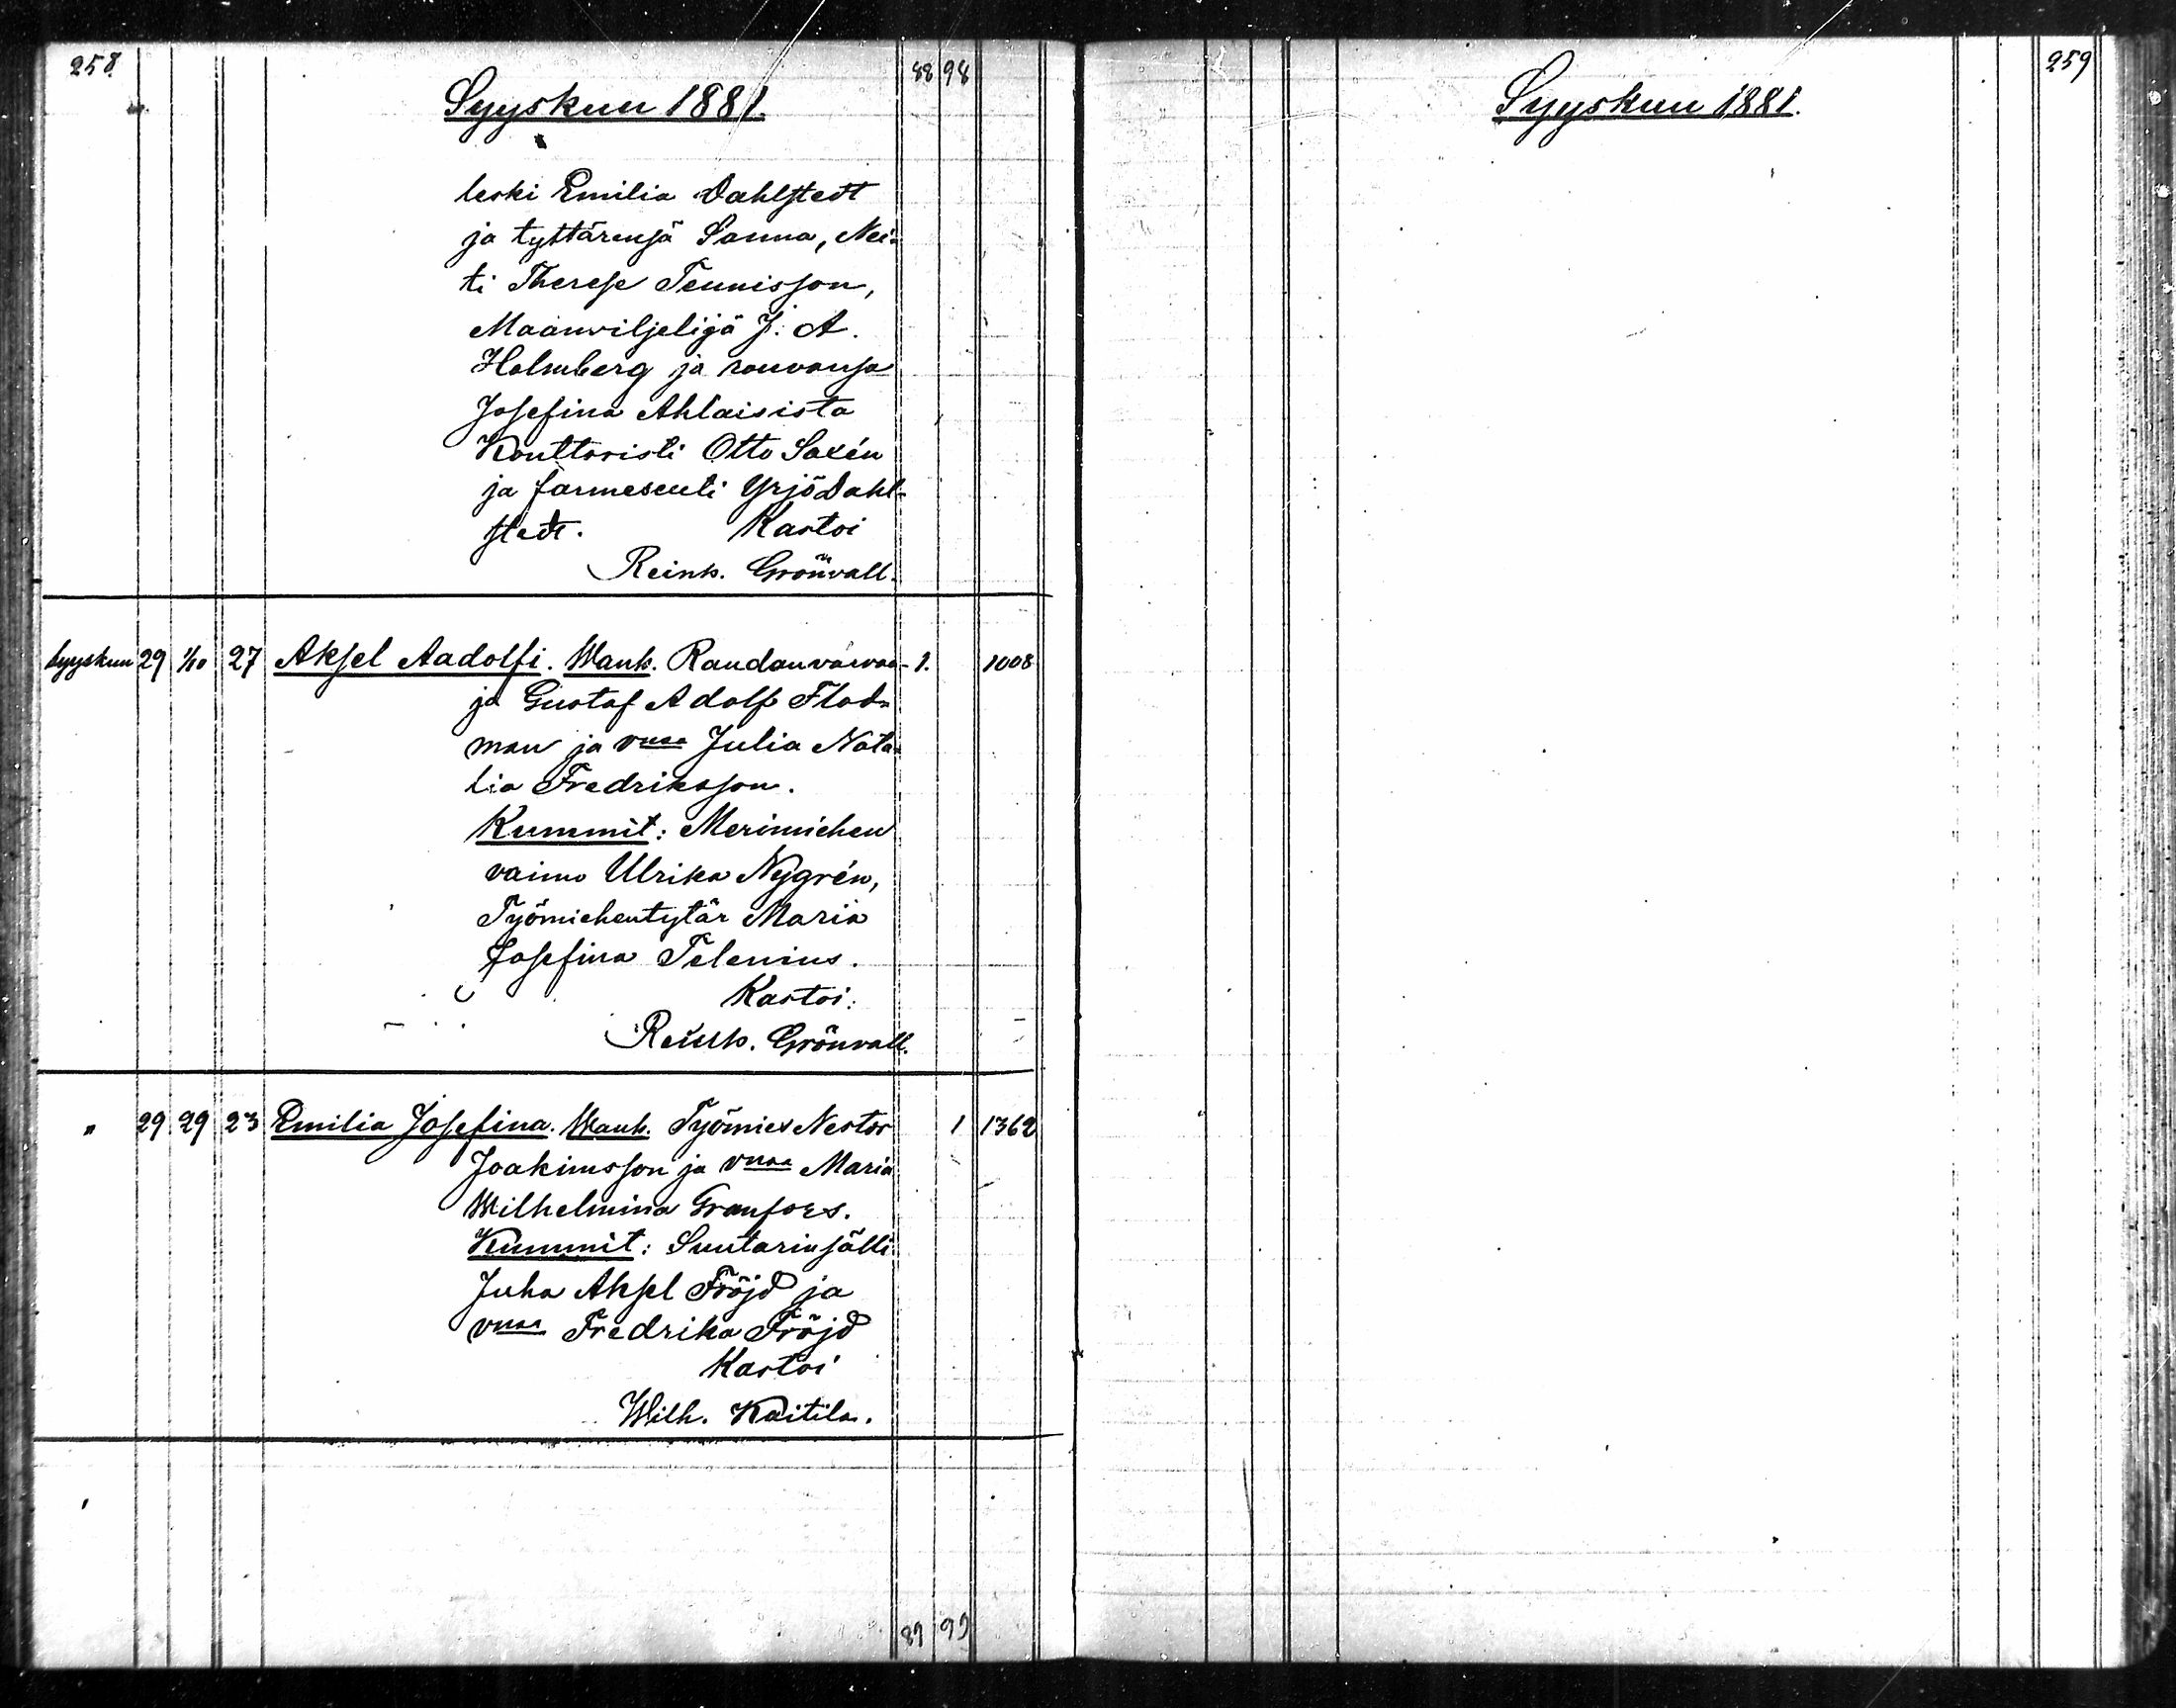 258
88 98
Syyskuu 1881.
leski Emilia Dahlstedt
ja tyttärensä Sanna, Nei-
ti Therese Tennisson,
Maanviljelijä J. A.
Holmberg ja rouvansa
Josefina Ahlaisista
Konttoristi Otto Saxén
ja farmeseuti Yrjö Dahl-
stedt. Kastoi
Reinh. Grönvall.
Syyskuu 29 1/10 27 Aksel Aadolfi. Wanh. Raudanvarvaa- 1. 1008
ja Gustaf Adolf Flod-
man ja vmoa Julia Nata-
lia Fredriksson.
Kummit: Merimiehen
vaimo Ulrika Nygrén,
Työmiehentytär Maria
Josefina Telenius.
Kastoi:
Reinh. Grönvall.
" 29 29 23 Emilia Josefina. Wanh. Työmies Nestor 1 1362
Joakimsson ja vmoa Maria
Wilhelmina Granfors.
Kummit: Suutarinsälli
Juha Aksel Fröjd ja
vmoa Fredrika Fröjd
Kastoi
Wilh. Kaitila.
89 99
259
Syyskuu 1881.